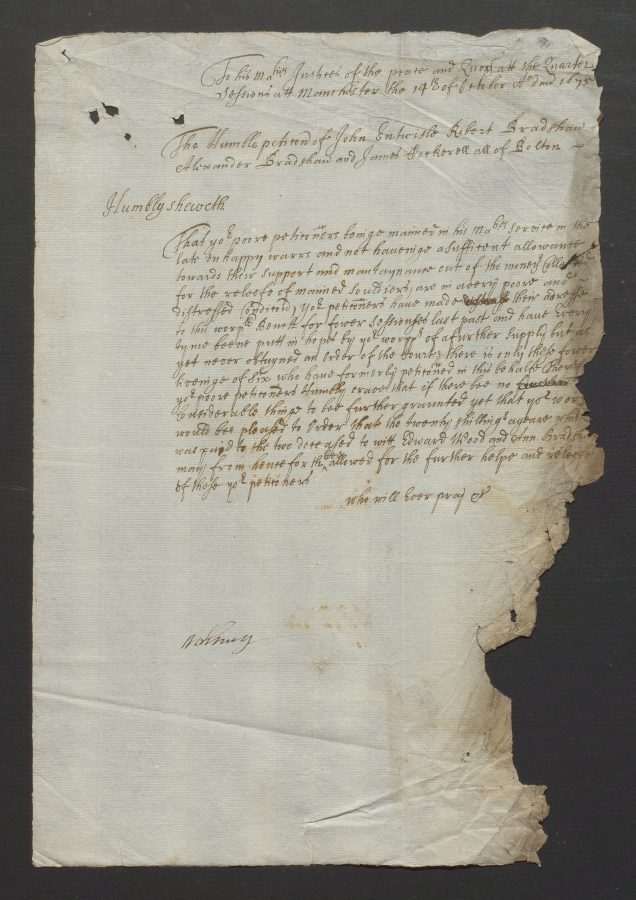 To his Ma:ties Justices of the peace and Quor: att the Quarter
Sessions att Manchester the 14th of October A:o d:ni 1675
The Humble petic:on of John Entwisle Robert Bradshaw
Alexander Bradshaw and James Cockerell all of Bolton ~
Humbly sheweth
That yo:r poore petic:oners beinge maimed in his Ma:ties service in the
late unhappy warrs and not haveinge a sufficent allowance
towards their support and mantaynance out of the moneys Collected
for the releefe of maimed Souldiers, are in a very poore and
distressed Condic:on, yo:r petic:oners have made their adresse
to this wor:pll Bench for fower Sessionses last past and have Every
tyme beene put in hopes by yo:r wor:pps of a further supply but as
yet never obtayned an order of the Court, there is only these fower
liveinge of six who have formerly petic:oned in this behalfe
yo:r poore petic:oners Humbly crave that if there bee no
Considerable thinge to bee further graunted yet that yo:r wor:
would bee pleased to Order that the twenty shillings a yeare which
was payd to the two deceased to witt Edward Wood and Ann Bradshaw
may from henceforth bee allowed for the further helpe and releefe
of these yo:r petic:oners
who will Ever pray &c